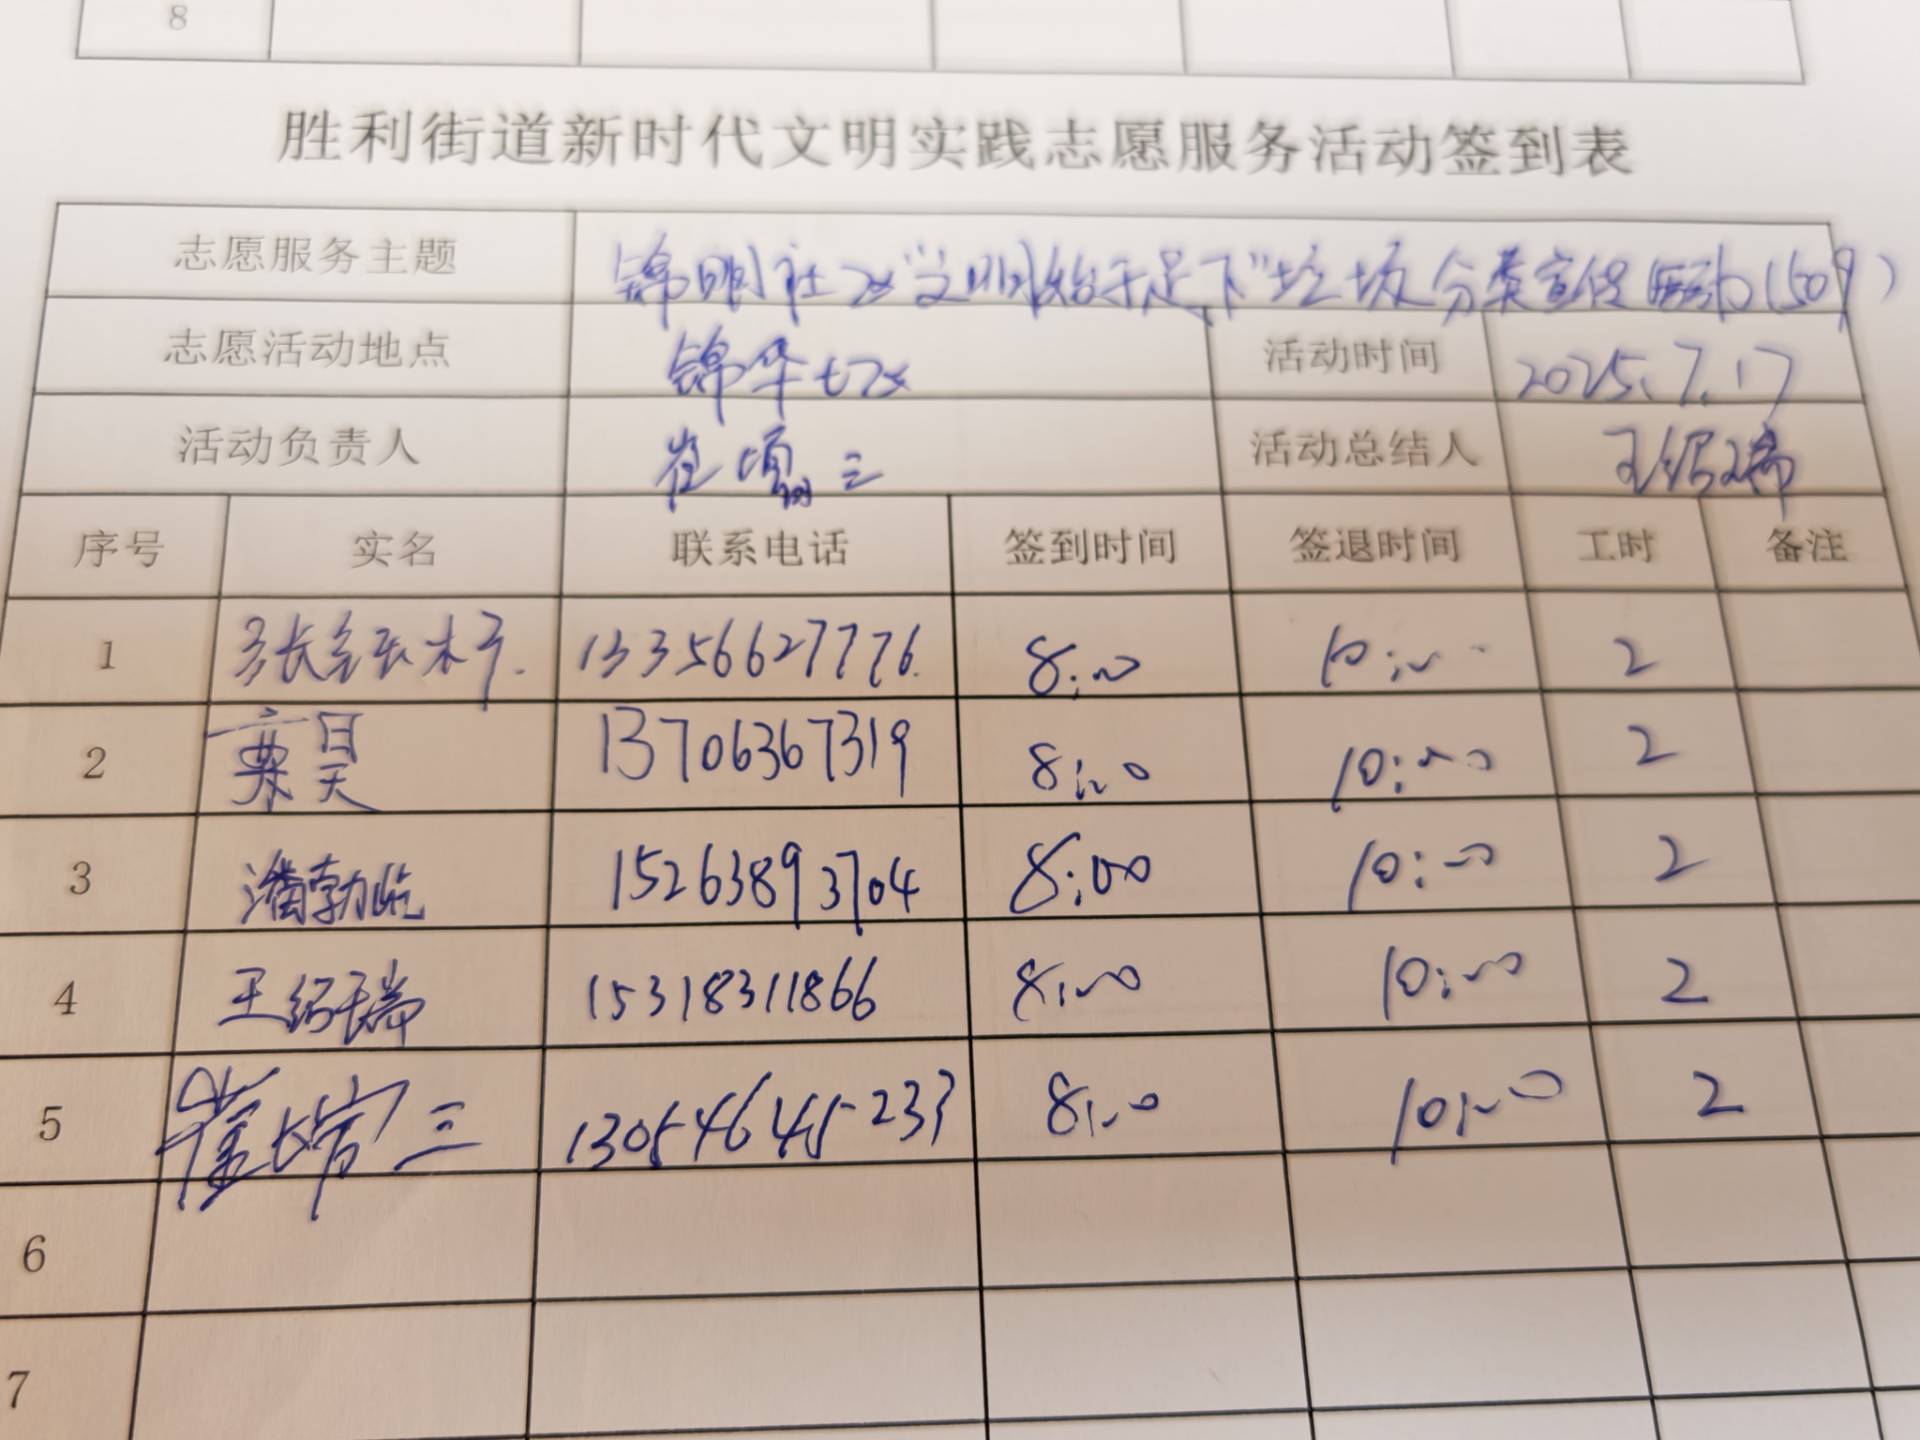 8
胜利街道新时代文明实践志愿服务活动签到表
志愿服务主题 锦明社区"文明始于足下"垃圾分类宣促活动(509)
志愿活动地点 锦华七区 活动时间 2025.7.17
活动负责人 崔 三 活动总结人 王绍瑞
序号 实名 联系电话 签到时间 签退时间 工时 备注
1 张红梓 13356627776 8:00 10:00 2
2 栗昊 13706367319 8:00 10:00 2
3 潘勃屹 15263893704 8:00 10:00 2
4 王绍瑞 15318311866 8:00 10:00 2
5 崔 三 13054645233 8:00 10:00 2
6
7